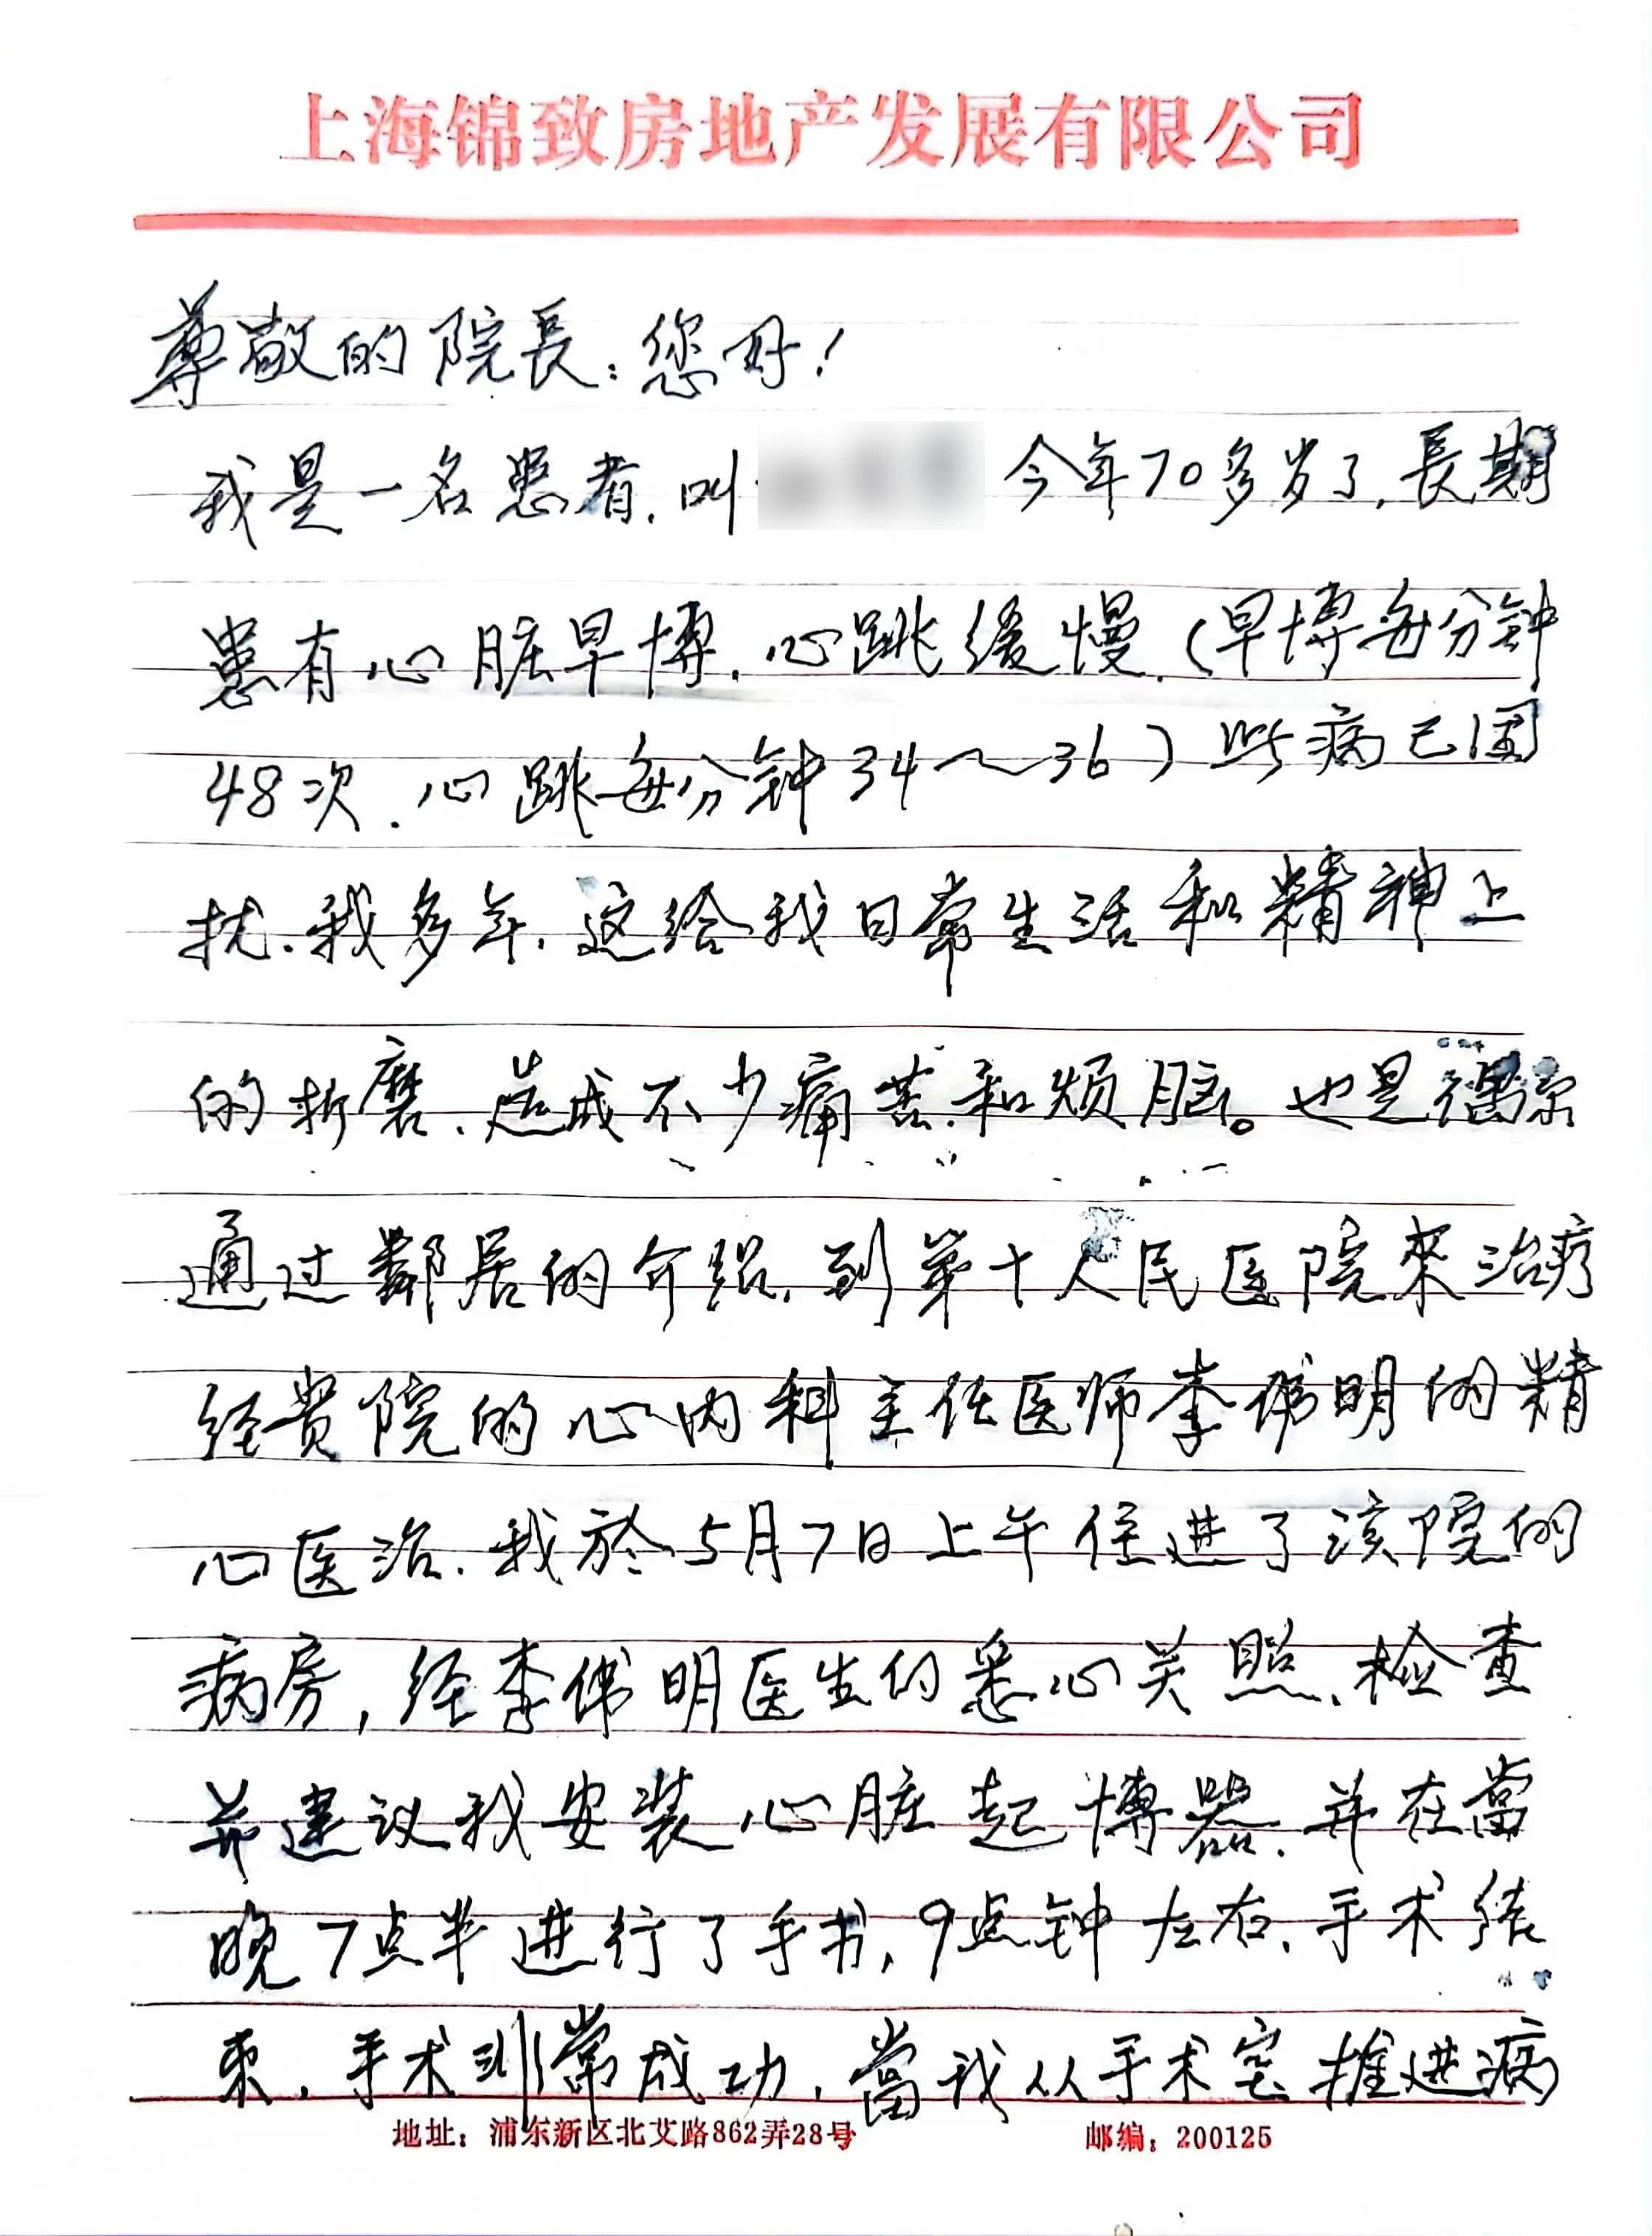 上海锦致房地产发展有限公司
尊敬的院長：您好！
我是一名患者，叫 今年70多岁了，長期
患有心脏早博，心跳缓慢，（早博每分钟
48次，心跳每分钟34～36）此病已困
扰、我多年，这给我日常生活和精神上
的折磨，造成不少痛苦和烦脑。也是偶尔
通过鄰居的介绍，到第十人民医院來治疗
经贵院的心内科主任医师李伟明的精
心医治，我於5月7日上午住进了该院的
病房，经李伟明医生的悉心关照、检查
并建议我安装心脏起博器，并在當
晚7点半进行了手术，9点钟左右，手术结
束，手术非常成功，當我从手术室推进病
地址：浦东新区北艾路862弄28号 邮编：200125